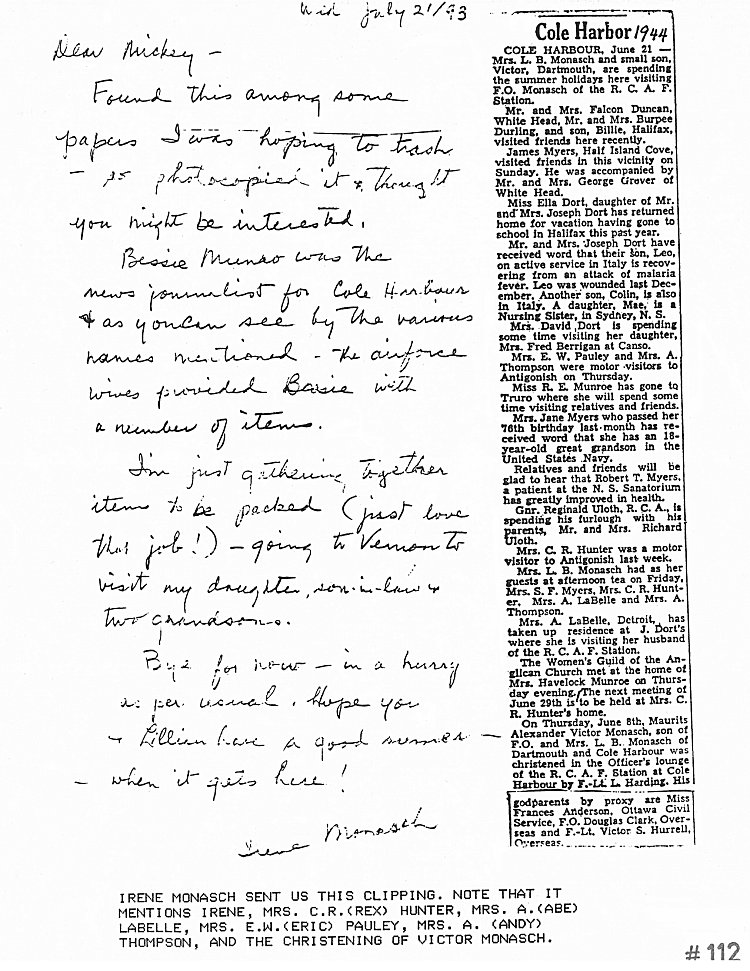 Wed July 21/93
Dear Mickey -
Found this among some
papers I was hoping to trash
- so photocopied it & thought
you might be interested.
Bessie Munro was the
news journalist for Cole Harbour
& as you can see by the various
names mentioned - the airforce
wives provided Bessie with
a number of items.
I'm just gathering together
items to be packed (just love
that job!) - going to Vernon to
visit my daughter, son-in-law &
two grandsons.
Bye for now - in a hurry
as per usual. Hope you
& Lillian have a good summer -
- when it gets here!
Irene Monasch
Cole Harbor 1944
COLE HARBOUR, June 21 —
Mrs. L. B. Monasch and small son,
Victor, Dartmouth, are spending
the summer holidays here visiting
F.O. Monasch of the R. C. A. F.
Station.
Mr. and Mrs. Falcon Duncan,
White Head, Mr. and Mrs. Burpee
Durling, and son, Billie, Halifax,
visited friends here recently.
James Myers, Half Island Cove,
visited friends in this vicinity on
Sunday. He was accompanied by
Mr. and Mrs. George Grover of
White Head.
Miss Ella Dort, daughter of Mr.
and Mrs. Joseph Dort has returned
home for vacation having gone to
school in Halifax this past year.
Mr. and Mrs. Joseph Dort have
received word that their son, Leo,
on active service in Italy is recov-
ering from an attack of malaria
fever. Leo was wounded last Dec-
ember. Another son, Colin, is also
in Italy. A daughter, Mae, is a
Nursing Sister, in Sydney, N. S.
Mrs. David Dort is spending
some time visiting her daughter,
Mrs. Fred Berrigan at Canso.
Mrs. E. W. Pauley and Mrs. A.
Thompson were motor visitors to
Antigonish on Thursday.
Miss R. E. Munroe has gone to
Truro where she will spend some
time visiting relatives and friends.
Mrs. Jane Myers who passed her
76th birthday last month has re-
ceived word that she has an 18-
year-old great grandson in the
United States Navy.
Relatives and friends will be
glad to hear that Robert T. Myers,
a patient at the N. S. Sanatorium
has greatly improved in health.
Gnr. Reginald Uloth, R. C. A., is
spending his furlough with his
parents, Mr. and Mrs. Richard
Uloth.
Mrs. C. R. Hunter was a motor
visitor to Antigonish last week.
Mrs. L. B. Monasch had as her
guests at afternoon tea on Friday,
Mrs. S. F. Myers, Mrs. C. R. Hunt-
er, Mrs. A. LaBelle and Mrs. A.
Thompson.
Mrs. A. LaBelle, Detroit, has
taken up residence at J. Dort's
where she is visiting her husband
of the R. C. A. F. Station.
The Women's Guild of the An-
glican Church met at the home of
Mrs. Havelock Munroe on Thurs-
day evening. The next meeting of
June 29th is to be held at Mrs. C.
R. Hunter's home.
On Thursday, June 8th, Maurits
Alexander Victor Monasch, son of
F.O. and Mrs. L. B. Monasch of
Dartmouth and Cole Harbour was
christened in the Officer's lounge
of the R. C. A. F. Station at Cole
Harbour by F.-Lt. L. Harding. His
godparents by proxy are Miss
Frances Anderson, Ottawa Civil
Service, F.O. Douglas Clark, Over-
seas and F.-Lt. Victor S. Hurrell,
Overseas.
IRENE MONASCH SENT US THIS CLIPPING. NOTE THAT IT
MENTIONS IRENE, MRS. C.R.(REX) HUNTER, MRS. A.(ABE)
LABELLE, MRS. E.W.(ERIC) PAULEY, MRS. A. (ANDY)
THOMPSON, AND THE CHRISTENING OF VICTOR MONASCH.
# 112